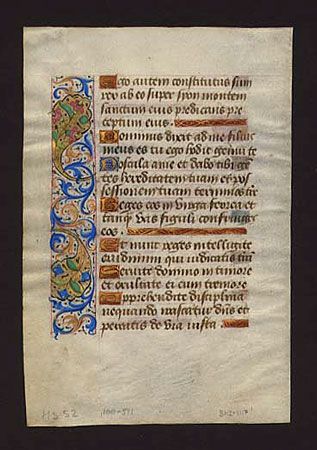 Ego autem constitutus sum
rex ab eo super syon montem
sanctum eius predicans pre
ceptum eius.
Dominus dixit ad me filius
meus es tu ego hodie genui te
Postula a me et dabo tibi gē
tes hereditatem tuam et pos
sessionem tuam terminos tr̄e
Reges eos in virga ferrea et
tanq̄ vas figuli confringes
eos.
Et nunc reges intelligite
erudimini qui iudicatis trā̄
Servite domino in timore
et exultate ei cum tremore
Apprehendite disciplinā
nequando irascatur dn̄s et
pereatis de via iusta.